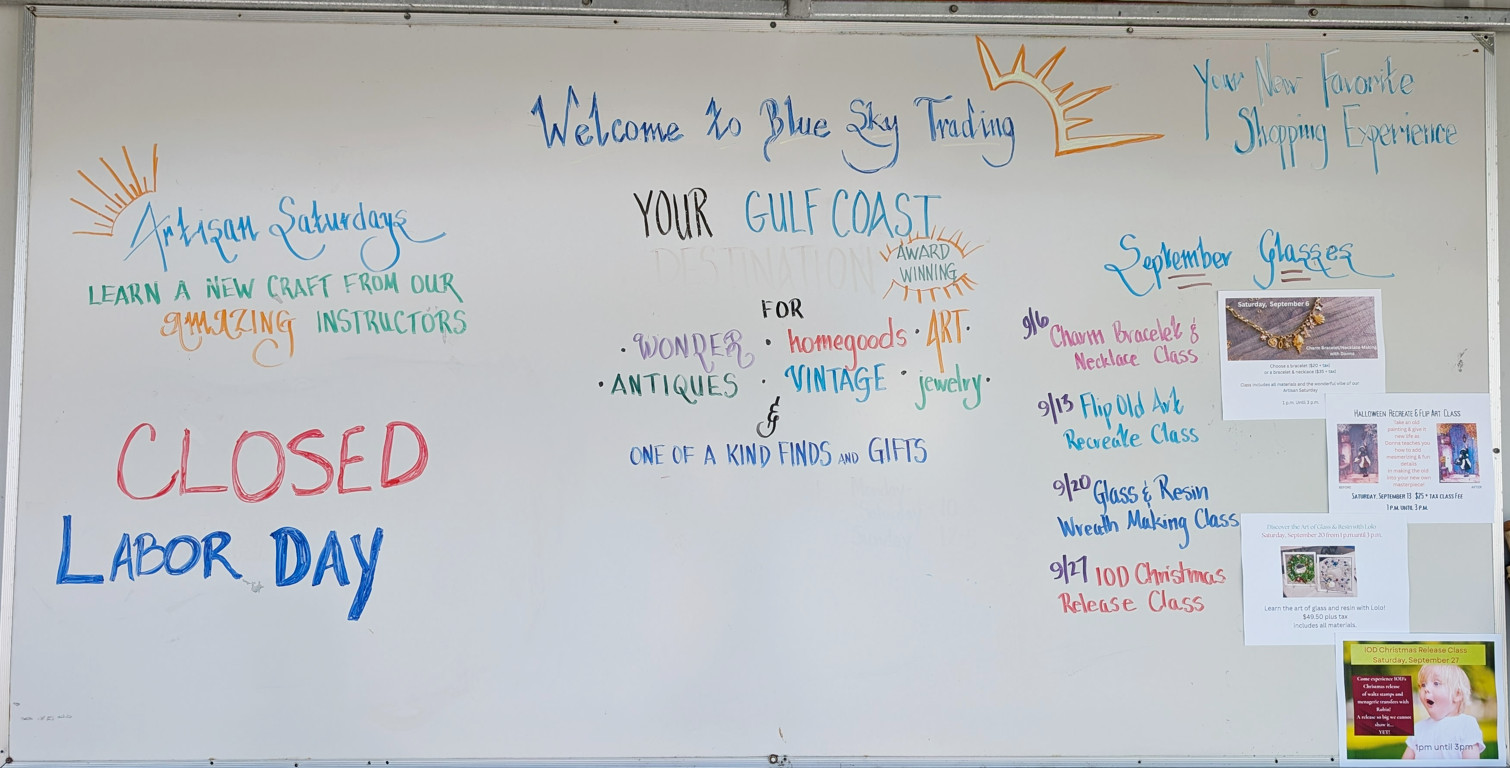 Welcome to Blue Sky Trading
Your New Favorite
Shopping Experience
Artisan Saturdays
LEARN A NEW CRAFT FROM OUR
AMAZING INSTRUCTORS
CLOSED
LABOR DAY
YOUR GULF COAST
DESTINATION
AWARD
WINNING
FOR
· WONDER · homegoods · ART ·
· ANTIQUES · VINTAGE · jewelry ·
&
ONE OF A KIND FINDS AND GIFTS
September Glasses
9/6 Charm Bracelet &
Necklace Class
9/13 Flip Old Art
Recreate Class
9/20 Glass & Resin
Wreath Making Class
9/27 IOD Christmas
Release Class
Saturday, September 6
Charm Bracelet/Necklace Making
with Donna
Choose a bracelet ($20 + tax)
or a bracelet & necklace ($35 + tax)
Class includes all materials and the wonderful vibe of our
Artisan Saturday
1 p.m. Until 3 p.m.
HALLOWEEN RECREATE & FLIP ART CLASS
Take an old
painting & give it
new life as
Donna teaches you
how to add
mesmerizing & fun
details
to making the old
into your new own
masterpiece!
BEFORE
AFTER
SATURDAY, SEPTEMBER 13 $25 + TAX CLASS FEE
1 P.M. UNTIL 3 P.M.
Discover the Art of Glass & Resin with Lolo
Saturday, September 20 from 1 p.m until 3 p.m.
Learn the art of glass and resin with Lolo!
$49.50 plus tax
includes all materials.
IOD Christmas Release Class
Saturday, September 27
Come experience IOD's
Christmas release
of stamps and
transfers with
Robin!
A release so big we cannot
show it...
YET!
1pm until 3pm